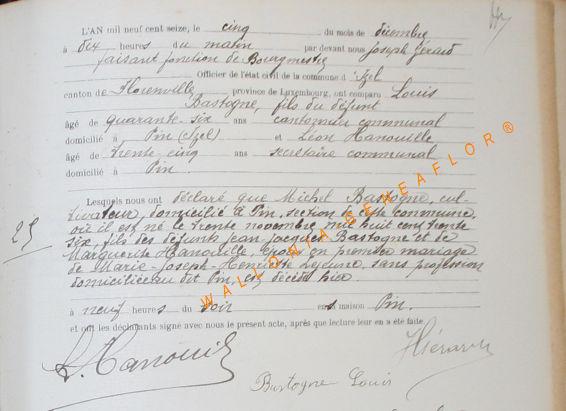 L'AN mil neuf cent seize, le cinq du mois de décembre
à dix heures du matin par devant nous Joseph Gérard
faisant fonction de Bourgmestre
Officier de l'état civil de la commune d'Izel
canton de Florenville, province de Luxembourg, ont comparu Louis
Bastogne, fils du défunt
âgé de quarante-six ans cantonnier communal
domicilié à Pin (Izel) et Léon Hanouille
âgé de trente cinq ans secrétaire communal
domicilié à Pin
Lesquels nous ont déclaré que Michel Bastogne, cul-
tivateur, domicilié à Pin, section de cette commune,
où il est né le trente novembre mil huit cent trente
six, fils des défunts Jean Jacques Bastogne et de
Marguerite Hanouille, époux en premier mariage
de Marie-Joseph Henriette Leduc, sans profession
domiciliée au dit Pin, est décédé hier
25
à neuf heures du soir en sa maison Pin.
et ont les déclarants signé avec nous le présent acte, après que lecture leur en a été faite.
L. Hanouille
Bastogne Louis
WALLONIA GENEAFLOR ®